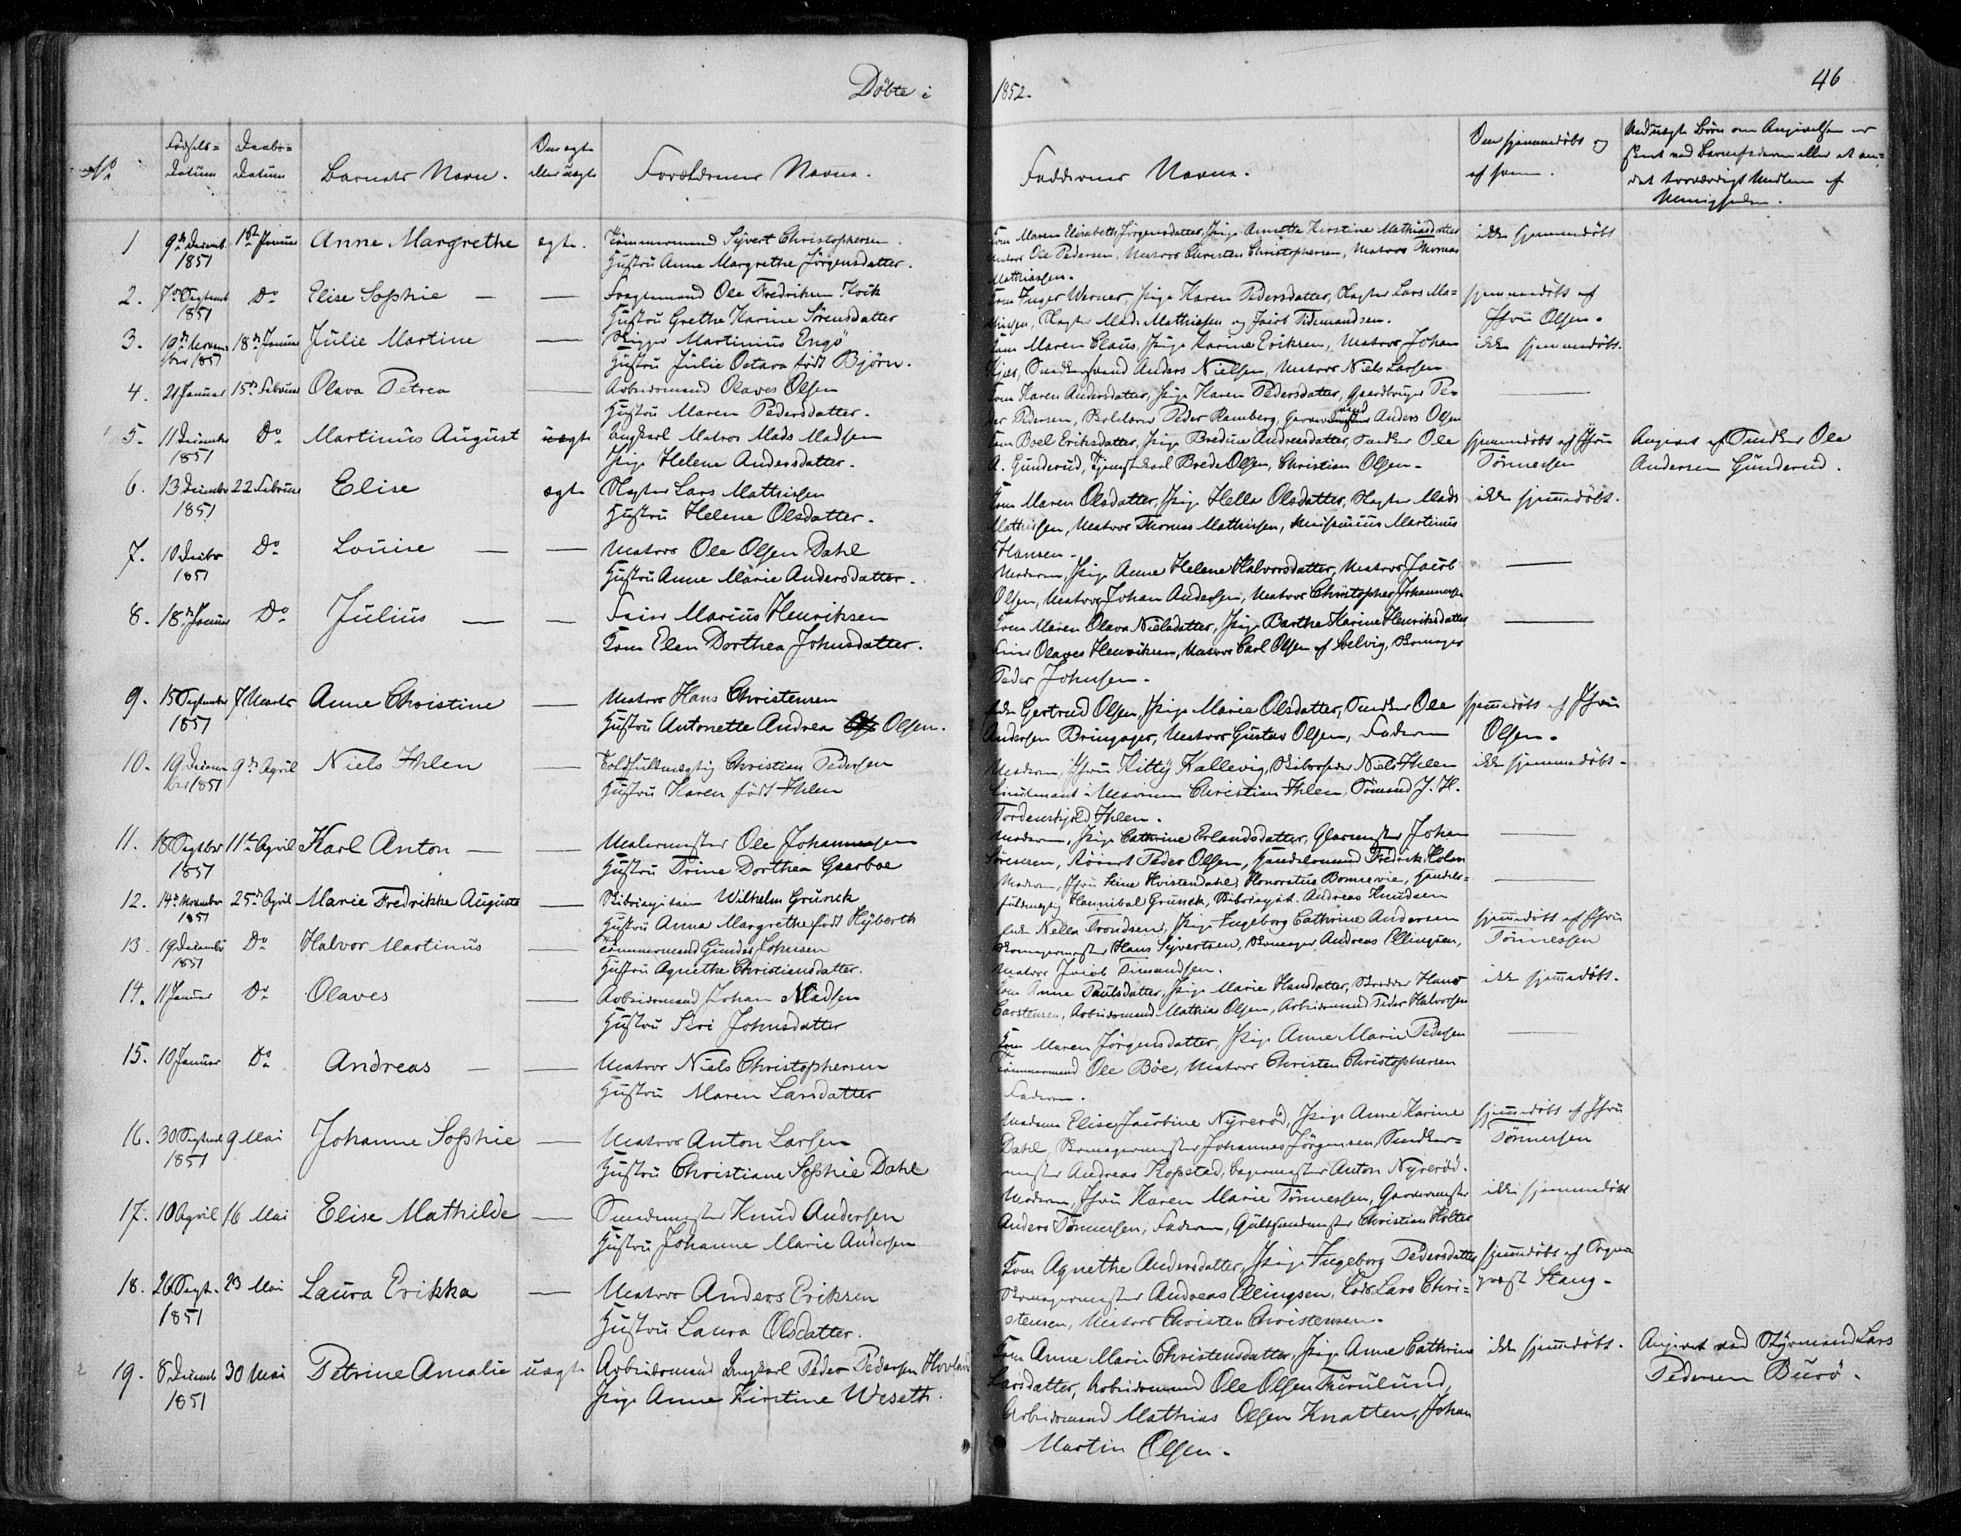 Döbte i
1852.
46
No
Födsels-
Datum
Daabs-
Datum
Barnets Navn.
Om ægte
eller uægte
Forældrenes Navne.
Faddernes Navne.
Om hjemmedøbt og
af hvem.
Ved uægte Børn om Angivelsen er
skeet ved Barnefaderen eller et an-
det troværdigt Medlem af
Menigheden.
1 9de Decemb. 1st Januar Anne Margrethe ægte. Tömmermand Sÿvert Christophersen
1851 Hustru Anne Margrethe Jörgensdatter.
Kone Maren Elisabeth Jörgensdatter, Pige Annette Kirstine Mathiasdatter ikke hjemmedöbt
Matros Ole Pedersen, Matros Christen Christophersen, Matros Thomas
Mathiassen.
2. 7de Septemb Do Elise Sophie — — Fragtemand Ole Fredriksen
1851 Hustru Grethe Karine Sörensdatter
Kone Inger Werner, Pige Karen Pedersdatter, Slagter Lars Ma- hjemmedöbt af
thiesen, Slagter Mads Mathiesen og Jacob Tidemandsen. Jfru Olsen.
3. 19de Novem- 18de Januar Julie Martine — Rigger Martinius Engö
ber 1851 Hustru Julie Octava födt Björn.
Kone Maren Claus, Pige Karine Eriksen, Matros Johan ikke hjemmedöbt.
Anders Nielsen, Matros Niels Larsen
4. 21 Januar 15de Februar Olava Petrea — Arbeidsmand Olaves Olsen
Hustru Maren Pedersdatter.
Kone Karen Andersdatter, Pige Karen Pedersdatter, Gaardbruger Pe- —
der Pedersen, Peder Ramberg, Anders Olsen
5. 11 December Do Martinus August uægte Ungkarl Matros Mads Madsen
1851 Pige Helene Andersdatter.
Kone Boel Eriksdatter, Pige Bredine Andreasdatter, Snedker Ole hjemmedöbt af Jfru Angivet af Snedker Ole
A. Gunderud, Tjenestekarl Brede Olsen, Christian Olsen. Tönnessen Andersen Gunderud.
6. 13 Decembr 22 Februar Elise ægte Slagter Lars Mathisen
1851 Hustru Helene Olsdatter.
Kone Maren Olsdatter, Pige Helle Olsdatter, Slagter Mads ikke hjemmedöbt.
Mathisen, Matros Thomas Mathisen, Martinus
Hansen.
7. 10 Decbr Do Louise — — Matros Ole Olsen Dahl
1851 Hustru Anne Marie Andersdatter.
Moderen, Pige Anne Helene Halvorsdatter, Matros Jacob —
Olsen, Matros Johan Andersen, Matros Christopher Johannesen
8. 18de Januar Do Julius — — Marius Henriksen
Kone Elen Dorthea Johnsdatter.
Kone Maren Olava Nielsdatter, Pige Berthe Karine Henriksdatter —
Olaves Henriksen, Matros Carl Olsen af Selvig, Skomager
Peder Johnsen.
9. 15 September 7 Marts Anne Christine — Matros Hans Christensen
1851 Hustru Antonette Andrea Olsen.
Enke Gertrud Olsen, Pige Marie Olsdatter, Snedker Ole hjemmedöbt af Jfru
Andersen Bringager, Matros Gustav Olsen, Faderen Olsen.
10. 19 Decem- 9de April Niels Ihlen — Toldfuldmægtig Christian Pedersen
ber 1851 Hustru Karen födt Ihlen
Moderen, Jfru Kitty Kallevig, Skibsreder Niels Ihlen ikke hjemmedöbt.
Lieutenant i Marinen Christian Ihlen, J. H.
Tordenskjold Ihlen.
11. 18 Septbr 11te April Karl Anton — — Malermester Ole Johannesen
1851 Hustru Trine Dorthea Gaarboe
Moderen, Pige Cathrine Erlandsdatter, Glarmester Johan —
Sörensen, Peder Olsen, Handelsmand Fredrik Holm
12. 14de November 25de April Marie Fredrikke Augusta — Skibscapitain Wilhelm Gruner
1851 Hustru Anna Margrethe födt Hÿberth
Moderen, Jfru Line Kvistendahl, Honoratus Bonnevie, Handels- —
fuldmægtig Hannibal Gruner, Skibscapt. Andreas Knudsen
13. 19 December Do Halvor Martinus — Tömmermand Gunder Johnsen
1851 Hustru Agnethe Christiansdatter.
Enke Nella Trondsen, Pige Ingeborg Cathrine Andersen hjemmedöbt af Jfru
Skomagermester Hans Sÿvertsen, Skomager Andreas Ellingsen, Tönnessen
Matros Jacob Timandsen.
14. 11 Januar Do Olaves — Arbeidsmand Johan Madsen
Hustru Siri Johnsdatter
Kone Anne Paulsdatter, Pige Marie Hansdatter, Skrædder Hans ikke hjemmedöbt.
Carstensen, Arbeidsmand Mathias Olsen, Arbeidsmand Peder Halvorsen
15. 10 Januar Do Andreas — — Matros Niels Christophersen
Hustru Maren Larsdatter
Kone Maren Jörgensdatter, Pige Anne Marie Pedersen —
Tömmermand Ole Böe, Matros Christen Christophersen
Faderen.
16. 30 Septemb 9 Mai Johanne Sophie — Matros Anton Larsen
1851 Hustru Christiane Sophie Dahl
Madam Elise Jacobine Nyrerød, Pige Anne Karine hjemmedöbt af Jfru
Dahl, Skomagermester Johannes Jörgensen, Snedker- Tönnessen
mester Andreas Kopstad, Bagermester Anton Nyrerød.
17. 10 April 16 Mai Elise Mathilde — Smedmester Knud Andersen
Hustru Johanne Marie Andersen
Moderen, Jfru Karen Marie Tönnessen, Garvermester ikke hjemmedöbt
Anders Tönnessen, Faderen, Guldsmedmester Christian Holter
18. 26 Sept. 23 Mai Laura Erikka — Matros Anders Eriksen
1851 Hustru Laura Olsdatter.
Kone Agnethe Andersdatter, Pige Ingeborg Pedersdatter hjemmedöbt af Sogne
Skomagermester Andreas Ellingsen, Lods Lars Chri- præst Stang.
stensen, Matros Christen Christensen.
19. 8 Decemb 30 Mai Petrine Amalie uægte Arbeidsmand Ungkarl Peder Pedersen Hovland
1851 Pige Anne Kirstine Weseth.
Kone Anne Marie Christensdatter, Pige Anne Cathrine ikke hjemmedöbt. Angivet ved Styrmand Lars
Larsdatter, Arbeidsmand Ole Olsen Furulund, Pedersen Burö.
Arbeidsmand Mathias Olsen Knatten, Johan
Martin Olsen.